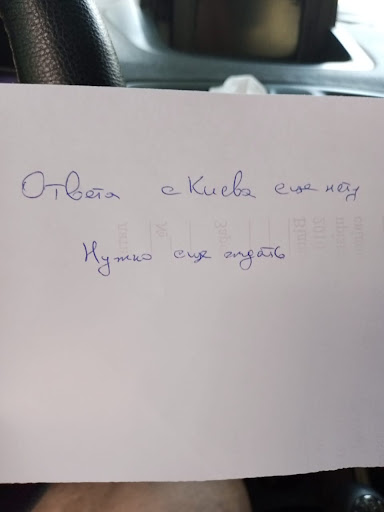 Ответа с Киева еще нету
Нужно еще ждать